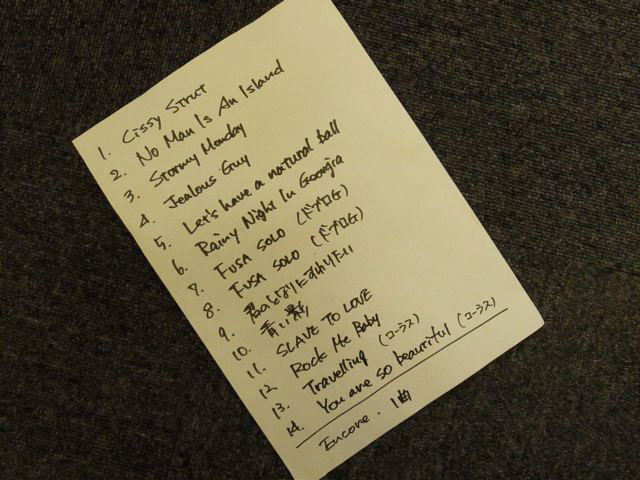 1. Cissy Strut
2. No Man Is An Island
3. Stormy Monday
4. Jealous Guy
5. Let's have a natural ball
6. Rainy Night In Georgia
7. FUSA SOLO (ドブロG)
8. FUSA SOLO (ドブロG)
9. 君のとなりにすわりたい
10. 青い影
11. SLAVE TO LOVE
12. Rock Me Baby
13. Travelling (コーラス)
14. You are so beautiful (コーラス)
Encore. 1曲